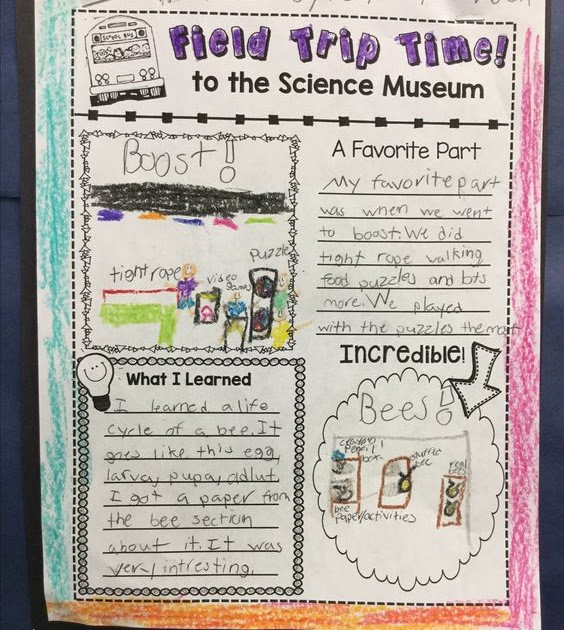 SCHOOL BUS
Field Trip Time!
to the Science Museum
Boost!
tightrope
video
games
puzzle
A Favorite Part
My favorite part
was when we went
to boost. We did
tight rope walking
food puzzles and bits
more. We played
with the puzzles the most
What I Learned
I learned a life
cycle of a bee. It
goes like this egg,
larva, pupa, adlut
I got a paper from
the bee section
about it. It was
very intresting.
Incredible!
Bees!
crayons
pencil
box
stuffed
bee
real
bees
bee
paper/activities